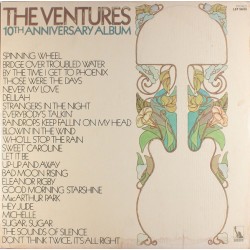 THE VENTURES
10TH ANNIVERSARY ALBUM
SPINNING WHEEL
BRIDGE OVER TROUBLED WATER
BY THE TIME I GET TO PHOENIX
THOSE WERE THE DAYS
NEVER MY LOVE
DELILAH
STRANGERS IN THE NIGHT
EVERYBODY'S TALKIN
RAINDROPS KEEP FALLIN ON MY HEAD
BLOWIN IN THE WIND
WHO'LL STOP THE RAIN
SWEET CAROLINE
LET IT BE
UP-UP AND AWAY
BAD MOON RISING
ELEANOR RIGBY
GOOD MORNING STARSHINE
MACARTHUR PARK
HEY JUDE
MICHELLE
SUGAR, SUGAR
THE SOUNDS OF SILENCE
DON'T THINK TWICE, IT'S ALL RIGHT